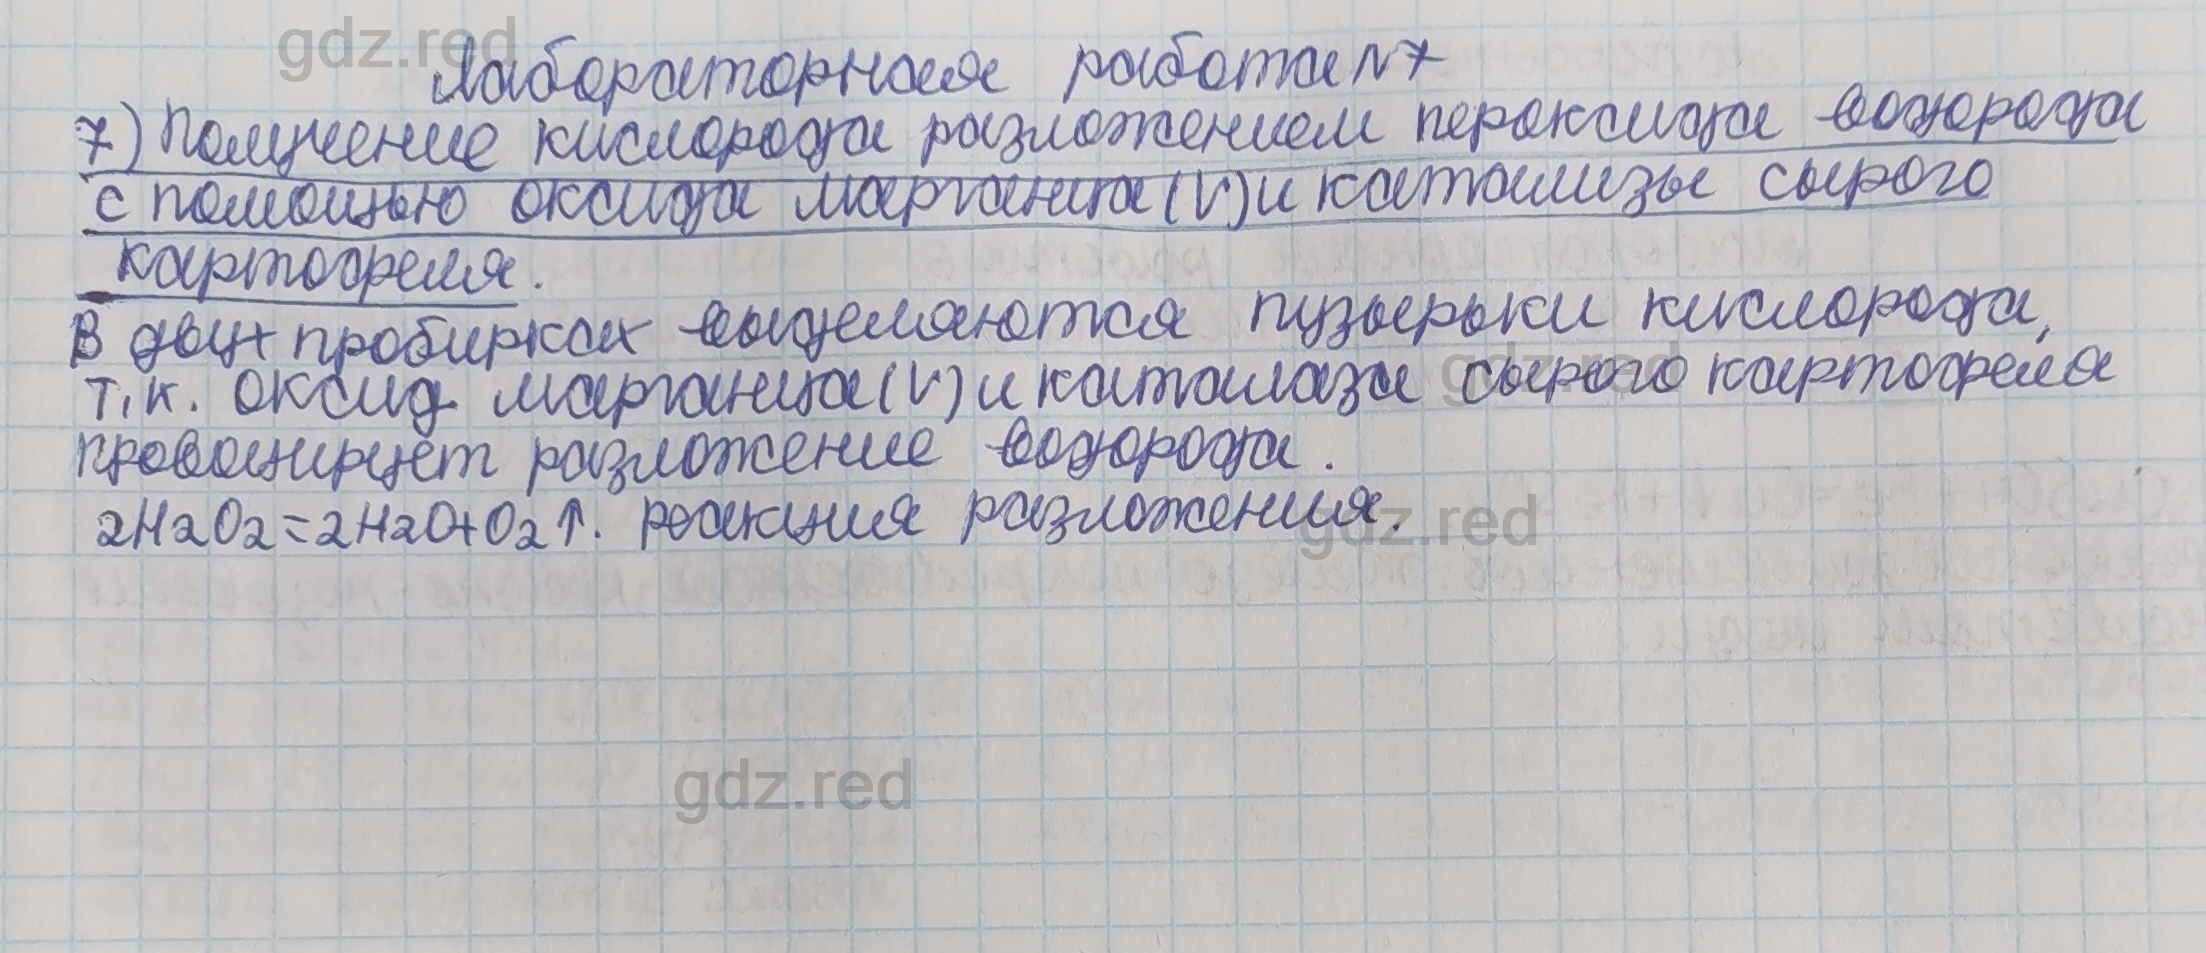 gdz.red
Лабораторная работа N7
7) Получение кислорода разложением пероксида водорода
с помощью оксида марганца (V) и катализы сырого
картофеля.
В двух пробирках выделяются пузырьки кислорода,
gdz.red
т.к. оксид марганца (V) и каталаза сырого картофеля
провоцирует разложение водорода.
2H2O2=2H2O+O2↑. реакция разложения.
gdz.red
gdz.red